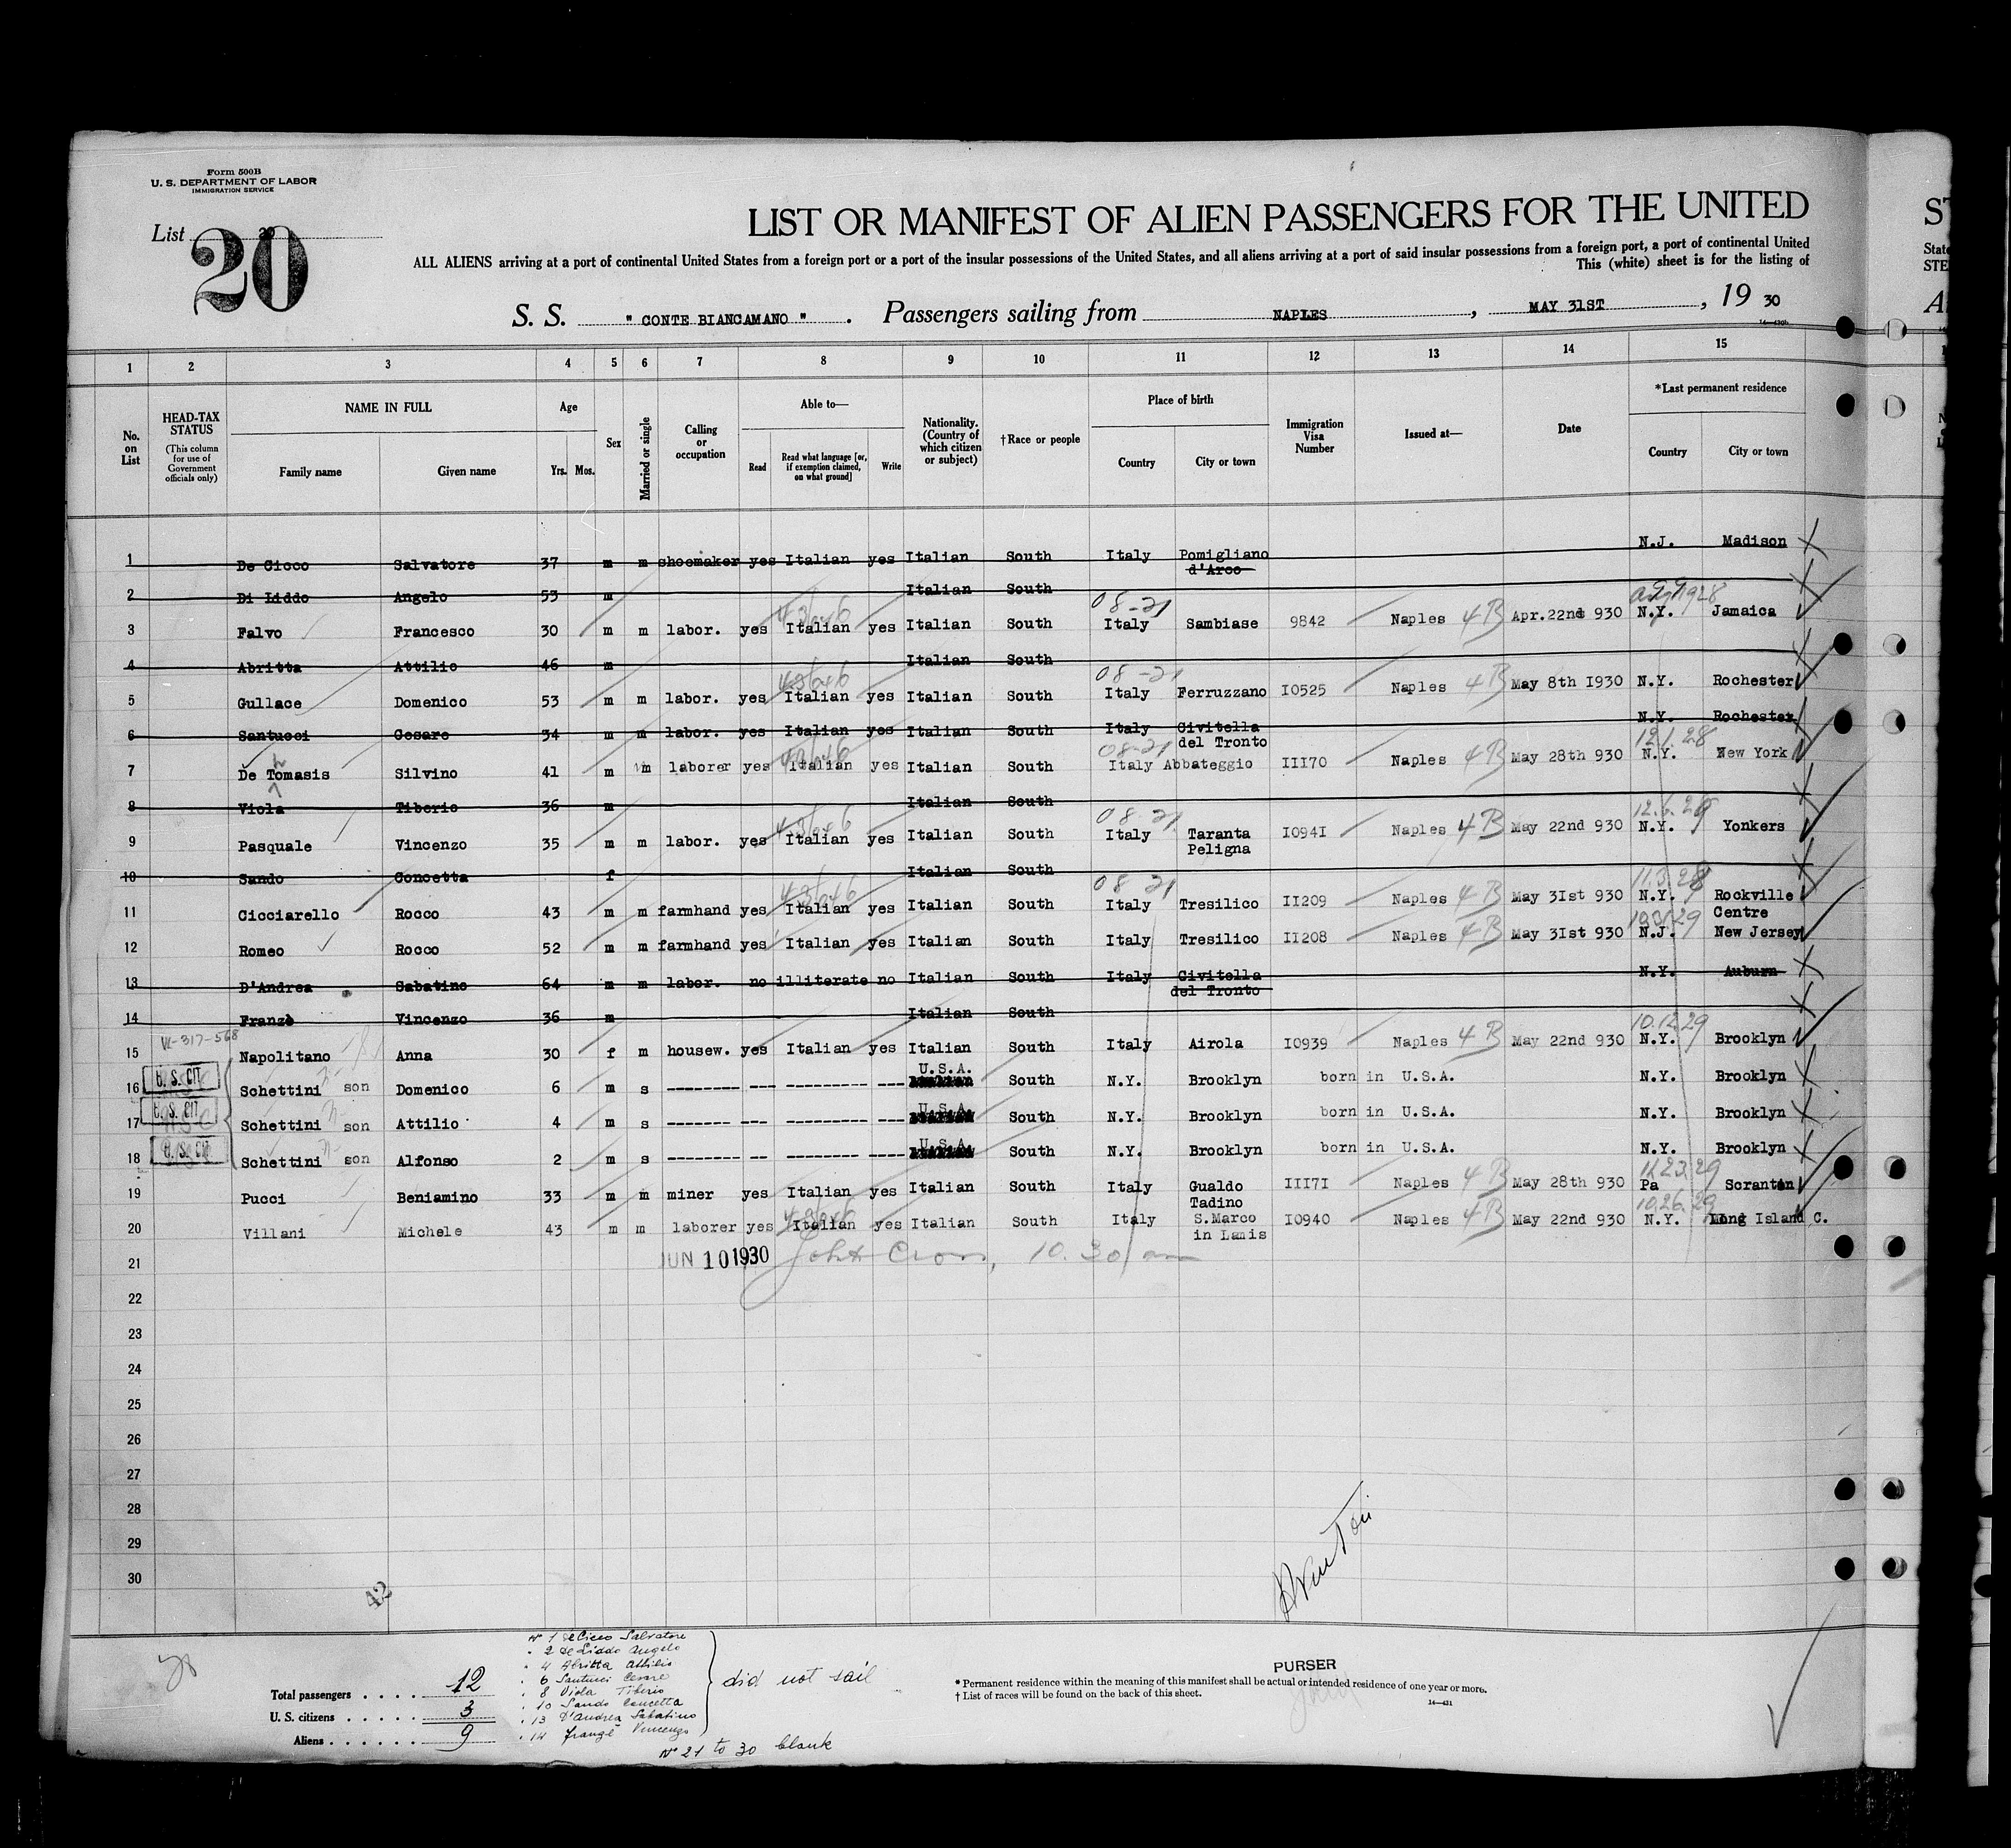 Form 500B
U. S. DEPARTMENT OF LABOR
IMMIGRATION SERVICE
List 20
20
LIST OR MANIFEST OF ALIEN PASSENGERS FOR THE UNITED
ALL ALIENS arriving at a port of continental United States from a foreign port or a port of the insular possessions of the United States, and all aliens arriving at a port of said insular possessions from a foreign port, a port of continental United
This (white) sheet is for the listing of
S. S. " CONTE BIANCAMANO " . Passengers sailing from NAPLES , MAY 31ST , 19 30
1 2 3 4 5 6 7 8 9 10 11 12 13 14 15
No. on List
HEAD-TAX STATUS
(This column for use of Government officials only)
NAME IN FULL
Family name Given name
Age
Yrs. Mos.
Sex
Married or single
Calling or occupation
Able to—
Read
Read what language [or, if exemption claimed, on what ground]
Write
Nationality. (Country of which citizen or subject)
†Race or people
Place of birth
Country City or town
Immigration Visa Number
Issued at—
Date
*Last permanent residence
Country City or town
1 De Cicco Salvatore 37 m m shoemaker yes Italian yes Italian South Italy Pomigliano d'Arco N.J. Madison
2 Di Liddo Angelo 53 m Italian South
3 Falvo Francesco 30 m m labor. yes Italian yes Italian South 08-21 Italy Sambiase 9842 Naples 4B Apr.22nd 930 N.Y. Jamaica
4 Abritta Attilio 46 m Italian South
5 Gullace Domenico 53 m m labor. yes Italian yes Italian South 08-21 Italy Ferruzzano I0525 Naples 4B May 8th I930 N.Y. Rochester
6 Santucci Cesare 34 m m labor. yes Italian yes Italian South Italy Civitella del Tronto N.Y. Rochester
7 De Tomasis Silvino 41 m m laborer yes Italian yes Italian South 08-21 Italy Abbateggio III70 Naples 4B May 28th 930 12.1.28 N.Y. New York
8 Viola Tiberio 36 m Italian South
9 Pasquale Vincenzo 35 m m labor. yes Italian yes Italian South 08-21 Italy Taranta Peligna I094I Naples 4B May 22nd 930 N.Y. Yonkers
10 Sando Concetta f Italian South
11 Cicciarello Rocco 43 m m farmhand yes Italian yes Italian South 08 21 Italy Tresilico II209 Naples 4B May 3Ist 930 11.3.28 N.Y. Rockville Centre
12 Romeo Rocco 52 m m farmhand yes Italian yes Italian South Italy Tresilico II208 Naples 4B May 3Ist 930 N.J. New Jersey
13 D'Andrea Sabatino 64 m m labor. no illiterate no Italian South Italy Civitella del Tronto N.Y. Auburn
14 Franzè Vincenzo 36 m Italian South
15 Napolitano Anna 30 f m housew. yes Italian yes Italian South Italy Airola I0939 Naples 4B May 22nd 930 10.12.29 N.Y. Brooklyn
16 U. S. CIT Schettini son Domenico 6 m s -------- --- ---------- ---- U.S.A. South N.Y. Brooklyn born in U.S.A. N.Y. Brooklyn
17 U. S. CIT Schettini son Attilio 4 m s -------- --- ---------- ---- U.S.A. South N.Y. Brooklyn born in U.S.A. N.Y. Brooklyn
18 U. S. CIT Schettini son Alfonso 2 m s --------- -- ---------- ---- U.S.A. South N.Y. Brooklyn born in U.S.A. N.Y. Brooklyn
19 Pucci Beniamino 33 m m miner yes Italian yes Italian South Italy Gualdo Tadino III7I Naples 4B May 28th 930 11.23.29 Pa Scranton
20 Villani Michele 43 m m laborer yes Italian yes Italian South Italy S.Marco in Lamis I0940 Naples 4B May 22nd 930 10.26.29 N.Y. Long Island C.
21 JUN 10 1930 10.30 am
22
23
24
25
26
27
28
29
30
42
Total passengers . . . . 12
U. S. citizens . . . . . 3
Aliens . . . . . . 9
N° 1 De Cicco Salvatore
" 2 De Liddo Angelo
" 4 Abritta Attilio
" 6 Santucci Cesare
" 8 Viola Tiberio
" 10 Sando Concetta
" 13 D'Andrea Sabatino
" 14 Franzè Vincenzo
did not sail
N° 21 to 30 blank
PURSER
* Permanent residence within the meaning of this manifest shall be actual or intended residence of one year or more.
† List of races will be found on the back of this sheet.
14—431